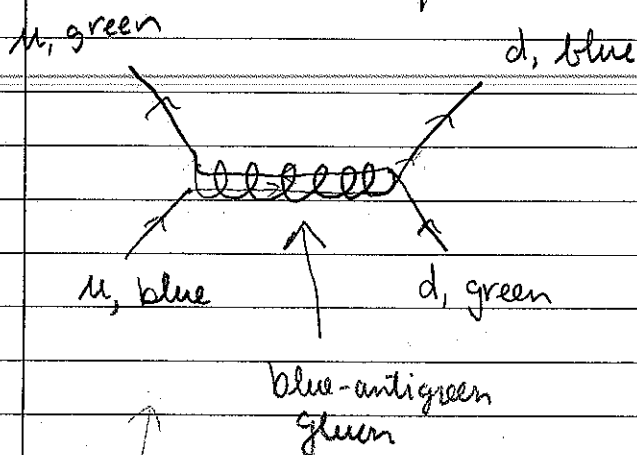 u, green
d, blue
u, blue
d, green
blue-antigreen
gluon